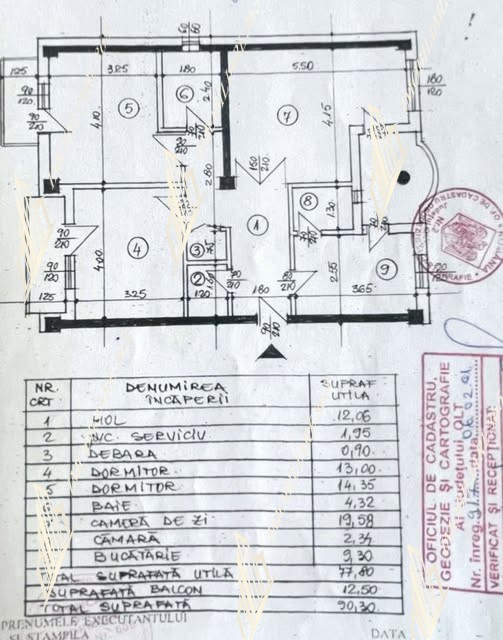 60
60
125
325
180
5.50
180
120
90
120
5
6
2.40
7
4.10
80
210
4.15
90
210
80
210
2.80
150
210
8
1.30
1
90
210
4
3
9
4.00
90
120
2
80
210
2.55
90
120
125
325
120
160
365
90
210
NR. CRT DENUMIREA ÎNCĂPERII SUPRAF UTILĂ
1 HOL 12,06
2 W.C. SERVICIU 1,95
3 DEBARA 0,90
4 DORMITOR 13,00
5 DORMITOR 14,35
BAIE 4,32
CAMERĂ DE ZI 19,58
CĂMARĂ 2,34
BUCĂTĂRIE 9,30
TOTAL SUPRAFATĂ UTILĂ 77,80
SUPRAFATĂ BALCON 12,50
TOTAL SUPRAFATĂ 90,30
PRENUMELE EXECUTANTULUI
ȘI STAMPILA
DATA
OFICIUL DE CADASTRU,
GEODEZIE ȘI CARTOGRAFIE
Al Județului OLT
Nr. înreg. 917 data 06.02.01
VERIFICAT ȘI RECEPȚIONAT